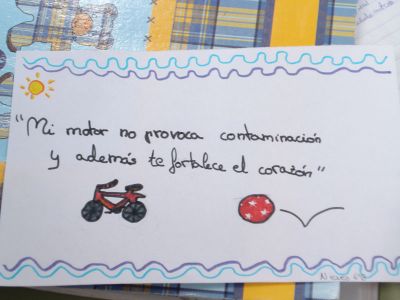 "Mi motor no provoca contaminación
y además te fortalece el corazón"